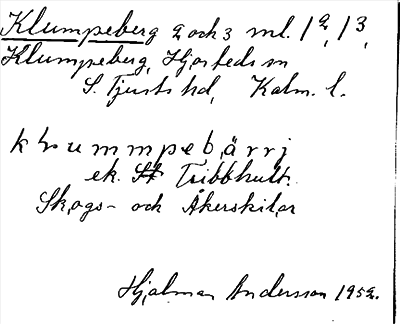 Klumpeberg 2 och 3 ml. 1², 1³,
Klumpeberg, Hjorteds sn
S. Tjusts hd, Kalm. l.
klummpebärrj
ek. St Tribbhult.
Skogs- och Åkerskilar
Hjalmar Andersson 1952.